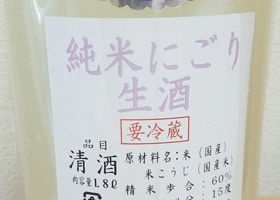 純米にごり
生酒
要冷蔵
品目
清酒
内容量1.8ℓ
原材料名:米(国産)
米こうじ(国産米)
精米歩合:60%
15度